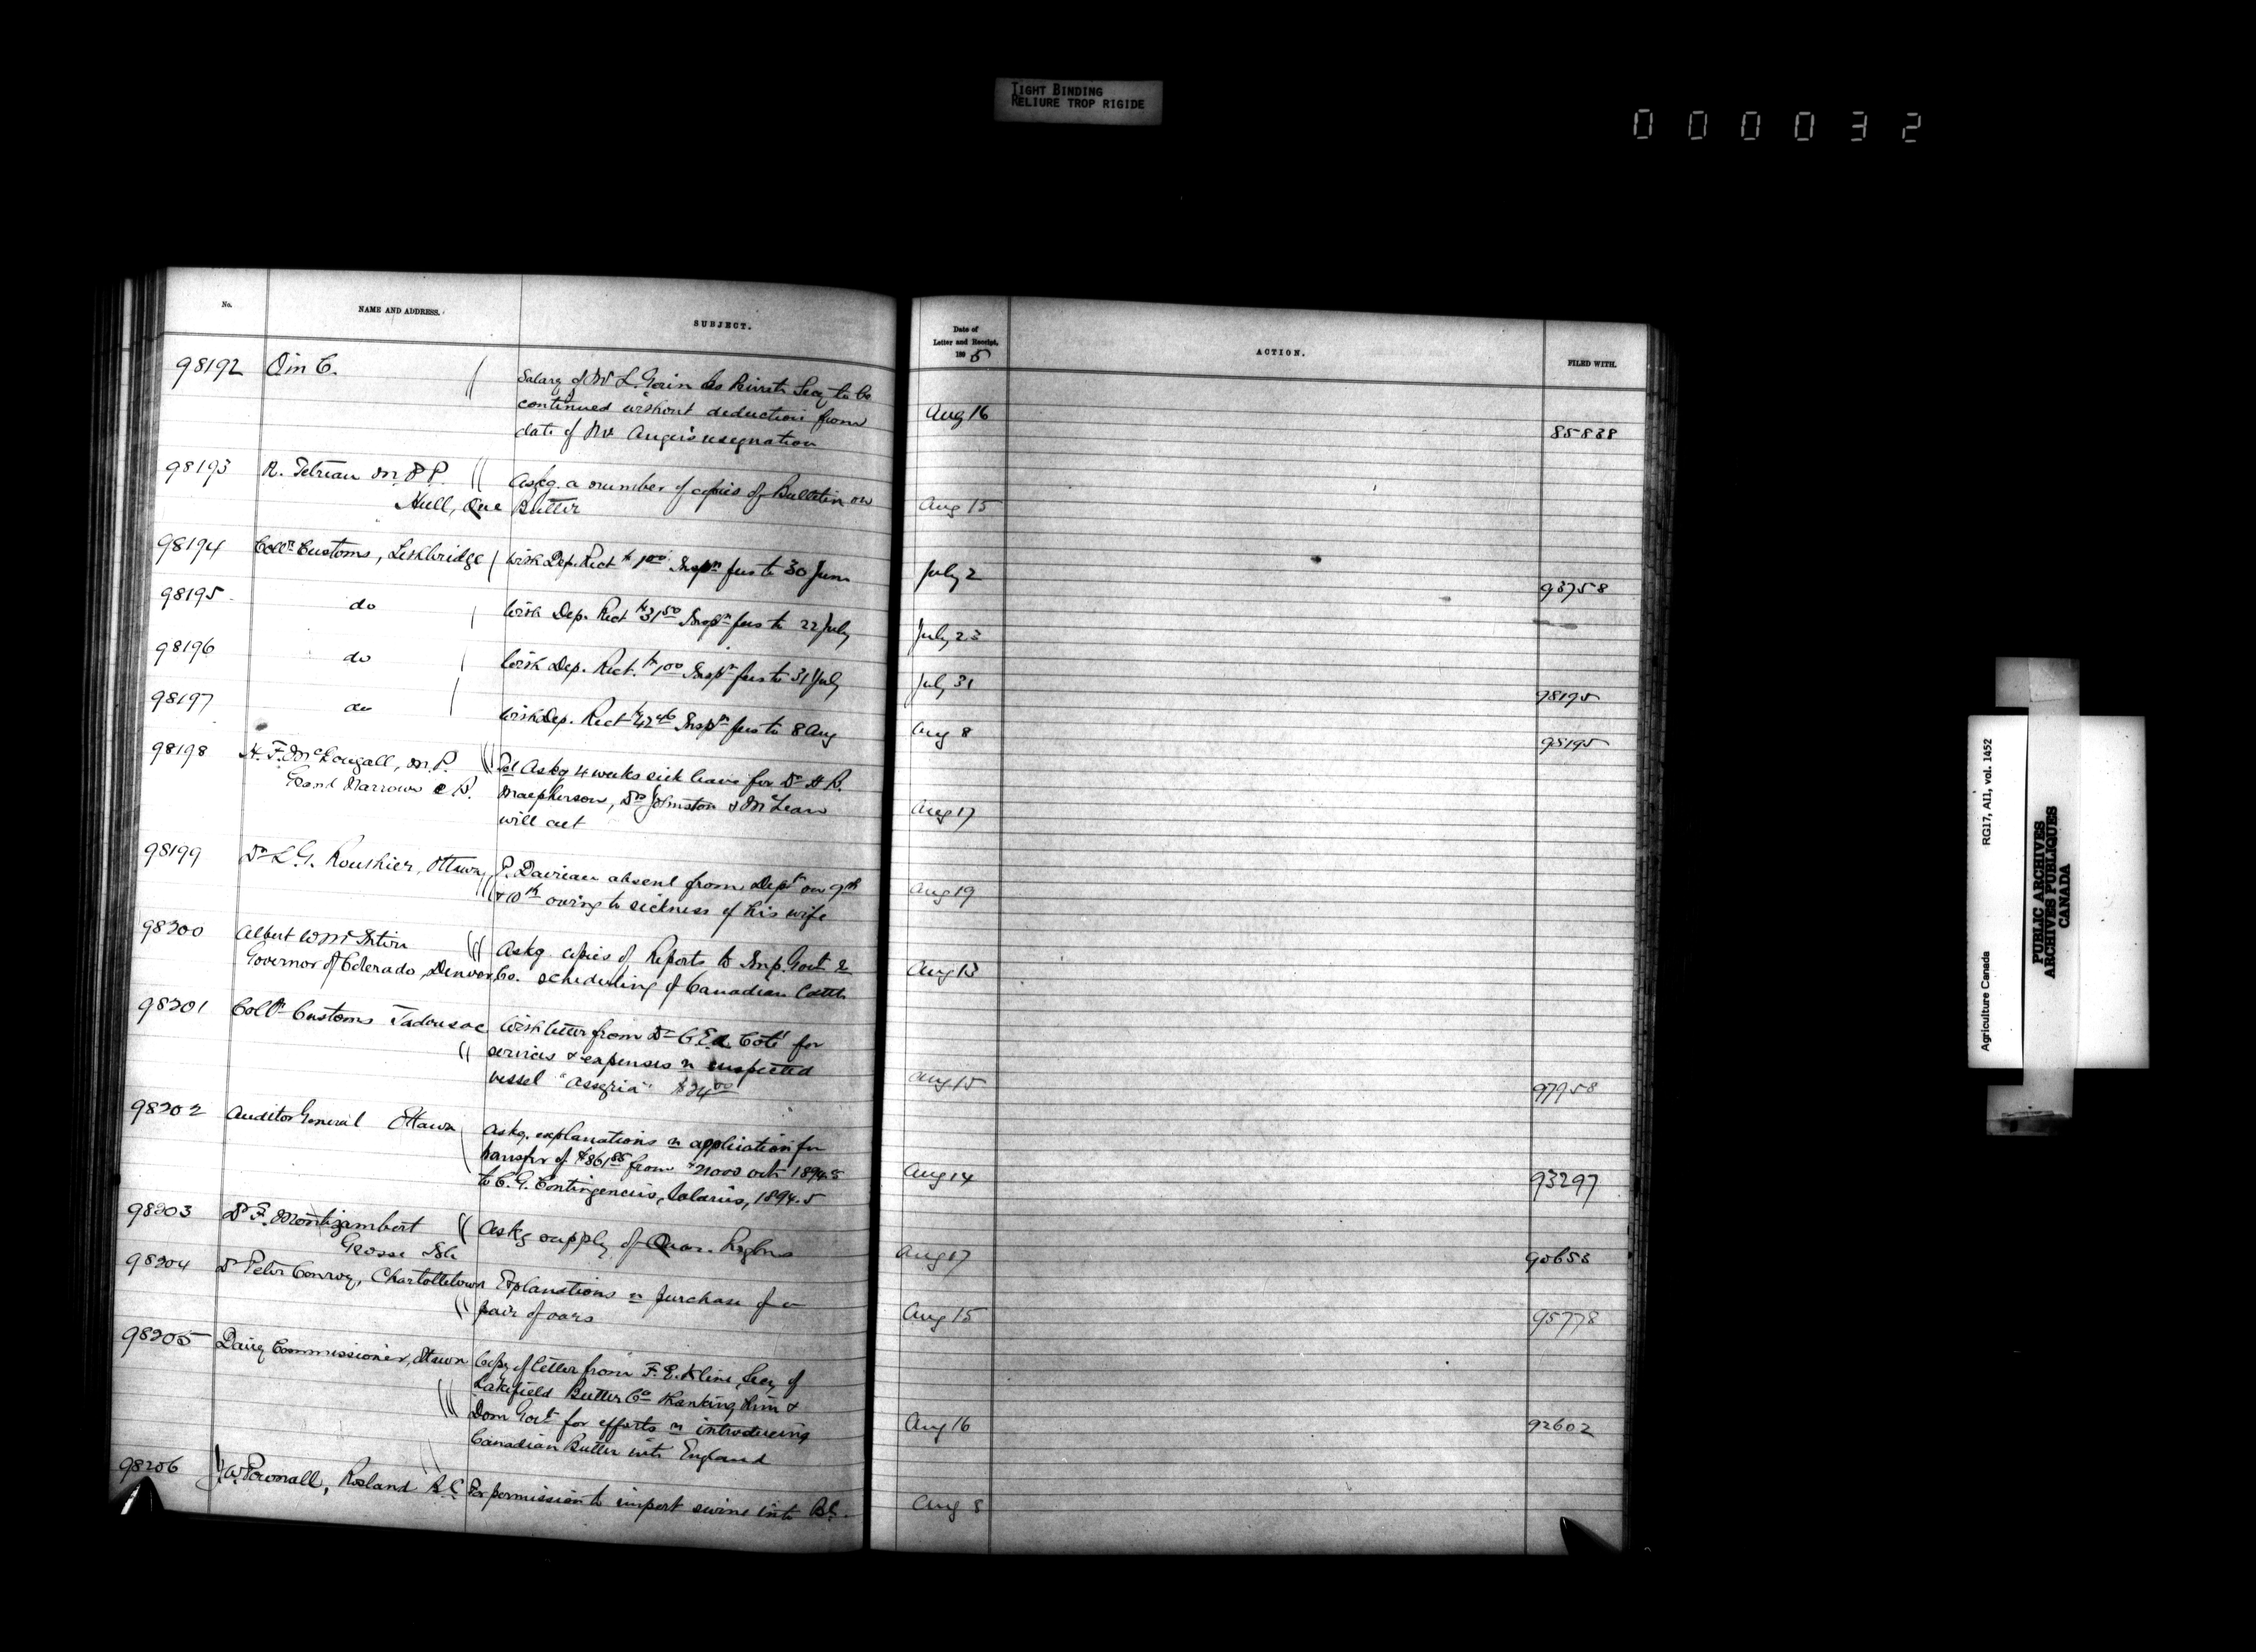 TIGHT BINDING
RELIURE TROP RIGIDE
000032
No.
NAME AND ADDRESS.
SUBJECT.
Date of
Letter and Receipt,
189 5
ACTION.
FILED WITH.
98192 O in C. Salary of Mr L. as Private Secy to be
continued without deduction from
date of Mr Angers resignation
Aug 16 85839
98193 R. Tetreau M.P.P. Askg. a number of copies of Bulletin on
Hull, Que Butter
Aug 15
98194 Collr Customs, Lethbridge With Dep. Rect $1.00 Inspn fees to 30 June
July 2 93758
98195 do With Dep. Rect $31.50 Inspn fees to 22 July
July 23
98196 do With Dep. Rect. $1.00 Inspn fees to 31 July
July 31 98195
98197 do With Dep. Rect $42.46 Inspn fees to 8 Aug
Aug 8 98195
98198 H. F. McDougall, M.P. Tel Askg 4 weeks sick leave for Dr H R.
Grand Narrows C B. Macpherson, Drs Johnston & McLean
will act
Aug 17
98199 Dr L. G. Routhier, Ottawa P. Dairieau absent from Dept on 9th
& 10th owing to sickness of his wife
Aug 19
98200 Albert W McIntire Askg. copies of Reports to Imp. Govt re
Governor of Colorado, Denver Co. scheduling of Canadian Cattle
Aug 13
98201 Collr Customs Tadousac With letter from Dr C. Ed. Coté for
services & expenses re suspected
vessel "Assyria" $24.00
Aug 15 97958
98202 Auditor General Ottawa Askg. explanations re application for
transfer of $861.85 from $21000 vote 1894-5
to C. G. Contingencies, Salaries, 1894-5
Aug 14 93297
98203 Dr F. Montizambert Askg supply of Quar. Reglns
Grosse Isle
Aug 17 90653
98204 Dr Peter Conroy, Charlottetown Explanations re purchase of a
pair of oars
Aug 15 95778
98205 Dairy Commissioner, Ottawa Copy of letter from F. E. Kline, Secy of
Lakefield Butter Co thanking him &
Dom Govt for efforts re introducing
Canadian Butter into England
Aug 16 92602
98206 J. W. Pownall, Rosland B.C. For permission to import swine into B.C.
Aug 8
Agriculture Canada
RG17, AII, vol. 1452
PUBLIC ARCHIVES
ARCHIVES PUBLIQUES
CANADA